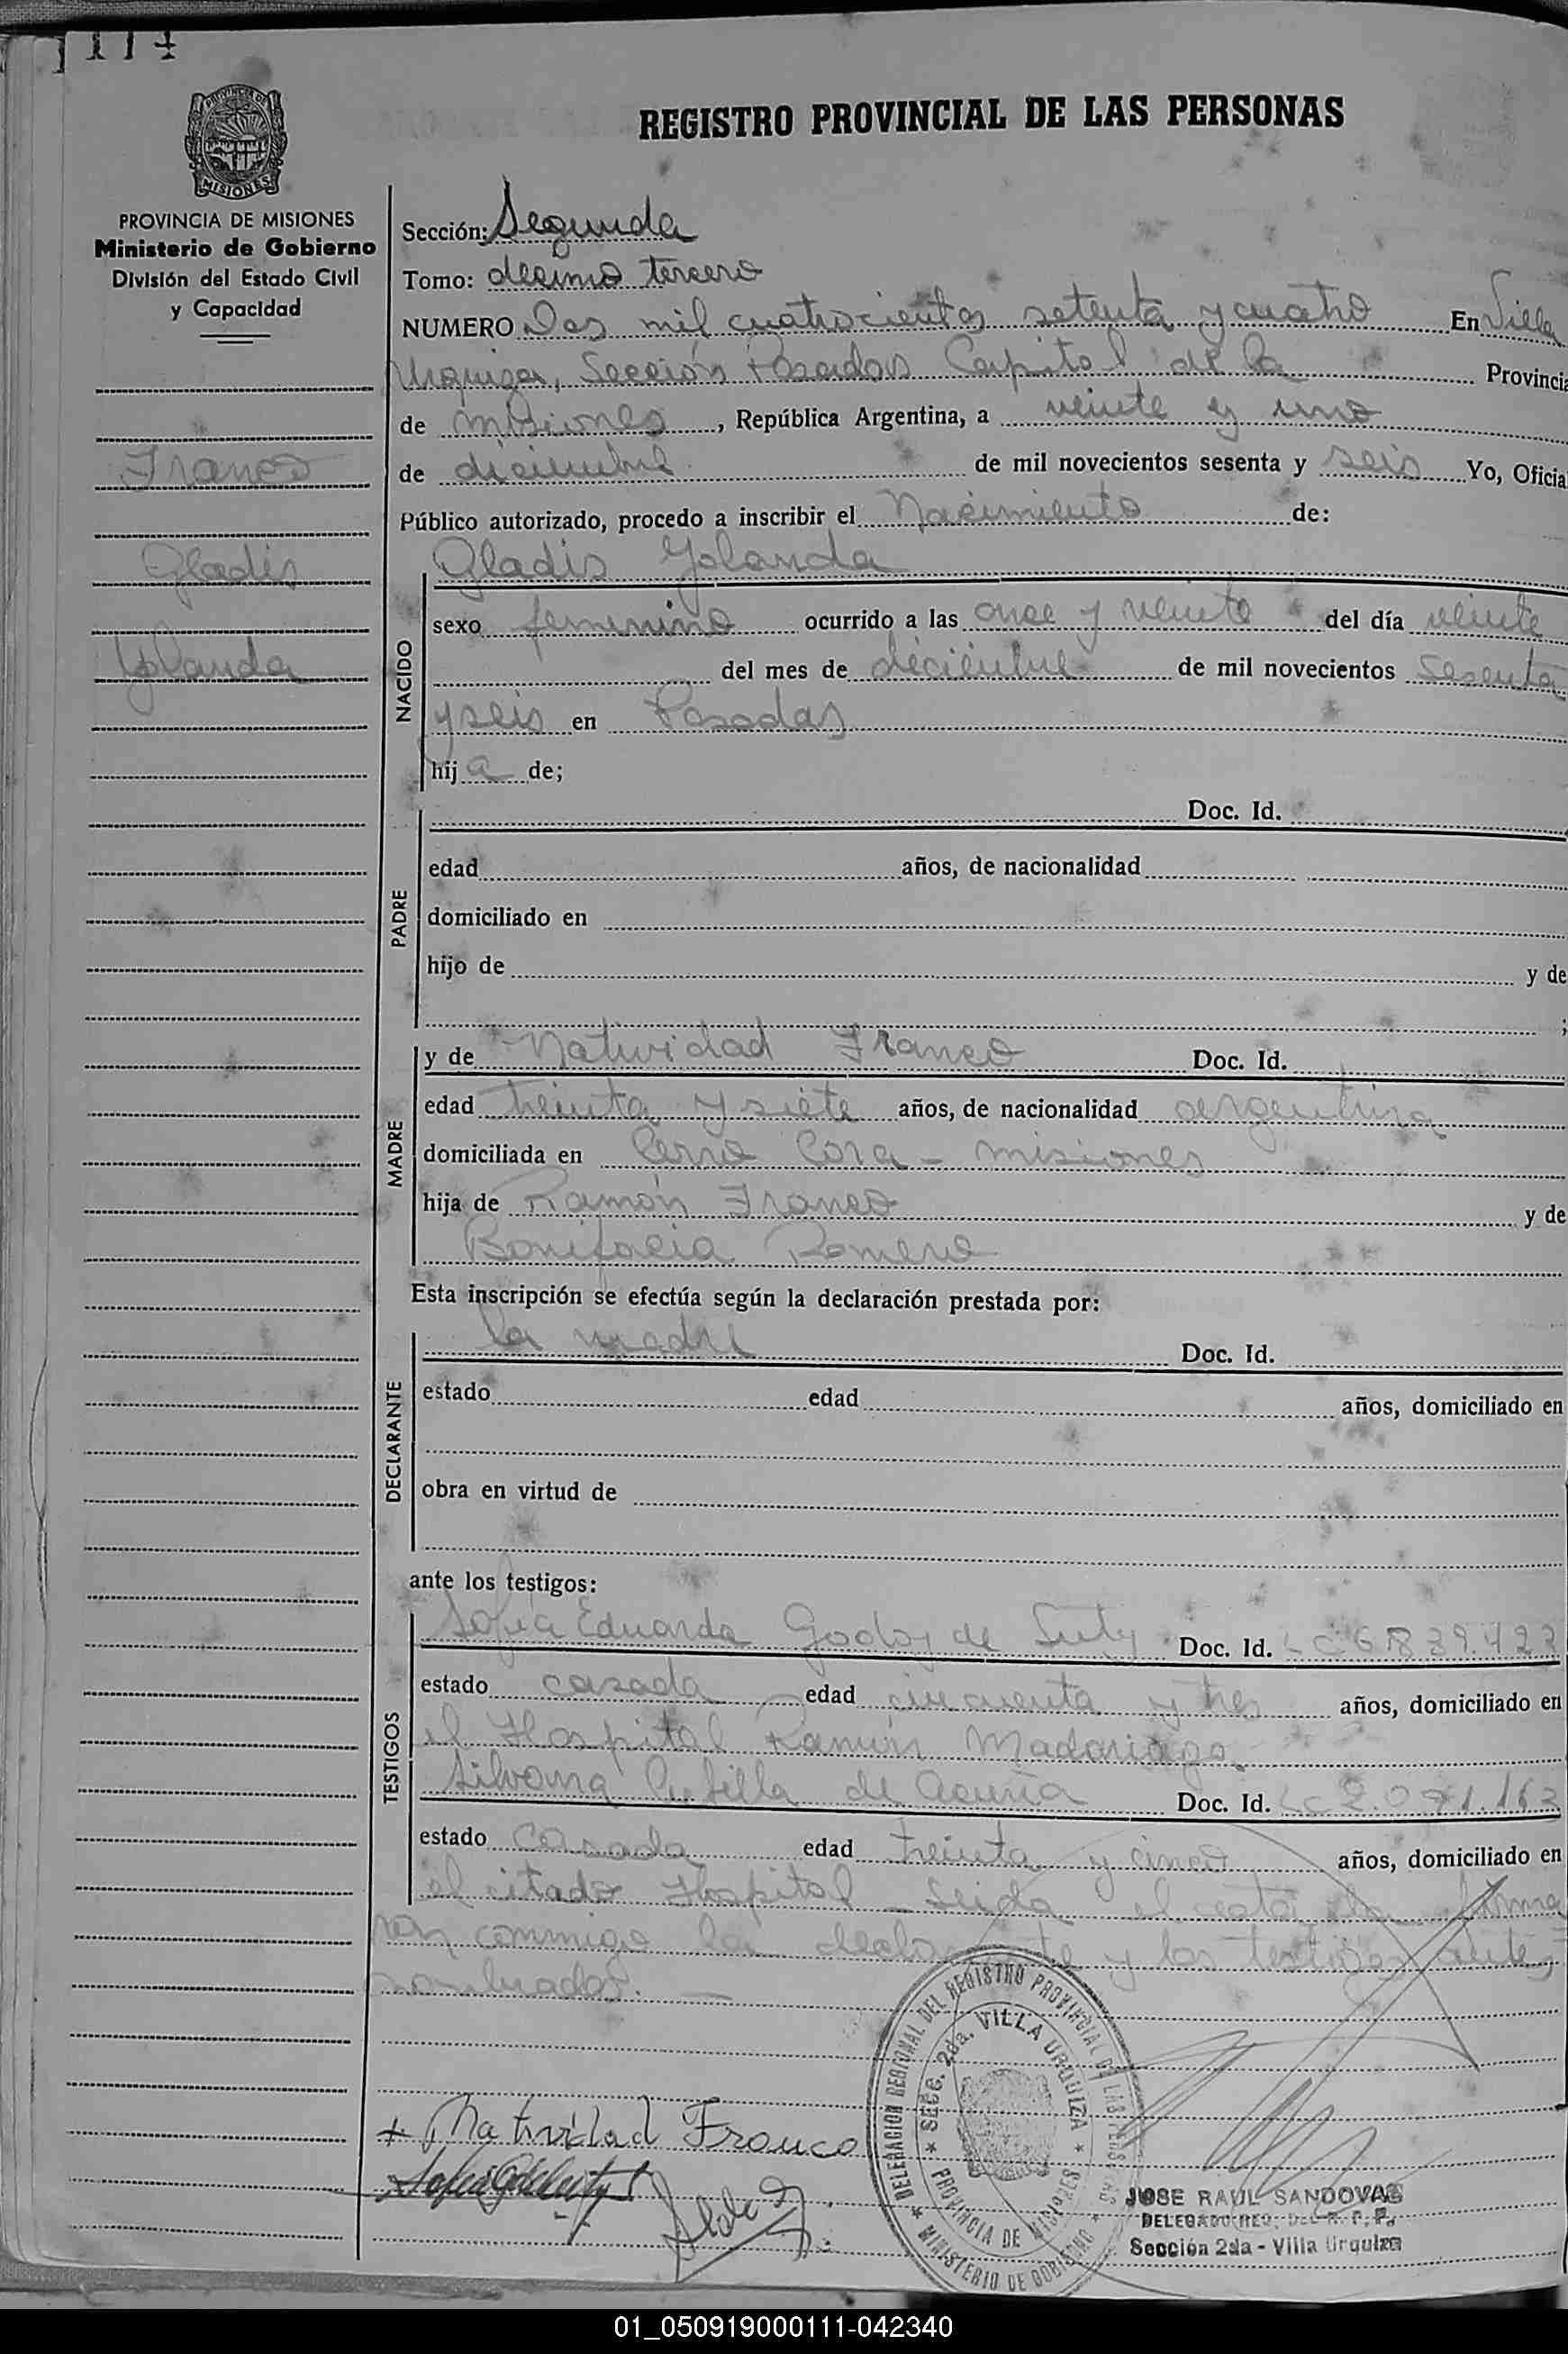 REGISTRO PROVINCIAL DE LAS PERSONAS
PROVINCIA DE MISIONES
Ministerio de Gobierno
División del Estado Civil
y Capacidad
Franco
Gladis
Yolanda
Sección: Segunda
Tomo: decimo tercero
NUMERO Dos mil cuatrocientos setenta y cuatro En Villa
Urquiza, Sección Posadas Capital de la Provincia
de Misiones, República Argentina, a veinte y uno
de diciembre de mil novecientos sesenta y seis Yo, Oficial
Público autorizado, procedo a inscribir el Nacimiento de:
NACIDO
Gladis Yolanda
sexo femenino ocurrido a las once y veinte del día veinte
del mes de diciembre de mil novecientos sesenta
y seis en Posadas
hija de;
PADRE
Doc. Id.
edad años, de nacionalidad
domiciliado en
hijo de y de
;
MADRE
y de Natividad Franco Doc. Id.
edad treinta y siete años, de nacionalidad argentina
domiciliada en Cerro Cora - Misiones
hija de Ramón Franco y de
Bonifacia Romero
Esta inscripción se efectúa según la declaración prestada por:
DECLARANTE
la madre Doc. Id.
estado edad años, domiciliado en
obra en virtud de
ante los testigos:
TESTIGOS
Sofia Eduarda Godoy de Doc. Id. LC 6.839.423
estado casada edad cincuenta y tres años, domiciliado en
el Hospital Ramón Madariaga
Silvana de Acuña Doc. Id. LC 2.071.163
estado casada edad treinta y cinco años, domiciliado en
el citado Hospital - Leida el acta la firma
ron conmigo la declarante y los testigos antes
nombrados. -
+ Natividad Franco
DELEGACION REGIONAL DEL REGISTRO PROVINCIAL DE LAS PERSONAS
SECC. 2da. VILLA URQUIZA
PROVINCIA DE MISIONES
MINISTERIO DE GOBIERNO
JOSE RAUL SANDOVAL
DELEGADO REG. DEL R. P. P.
Sección 2da - Villa Urquiza
01_050919000111-042340